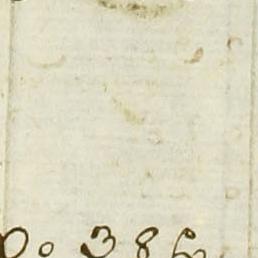 No 386